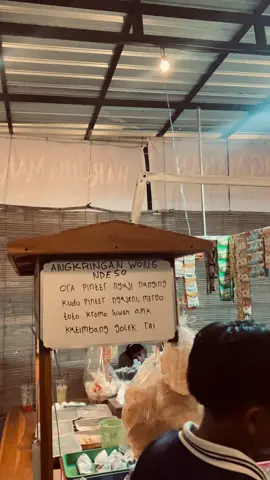 ANGKRINGAN WONG
NDESO
ORA PINTER NGAJI NANGING
KUDU PINTER NGAJENI, MERGO
TOTO KROMO LUWEH APIK
KATIMBANG GOLEK RAI